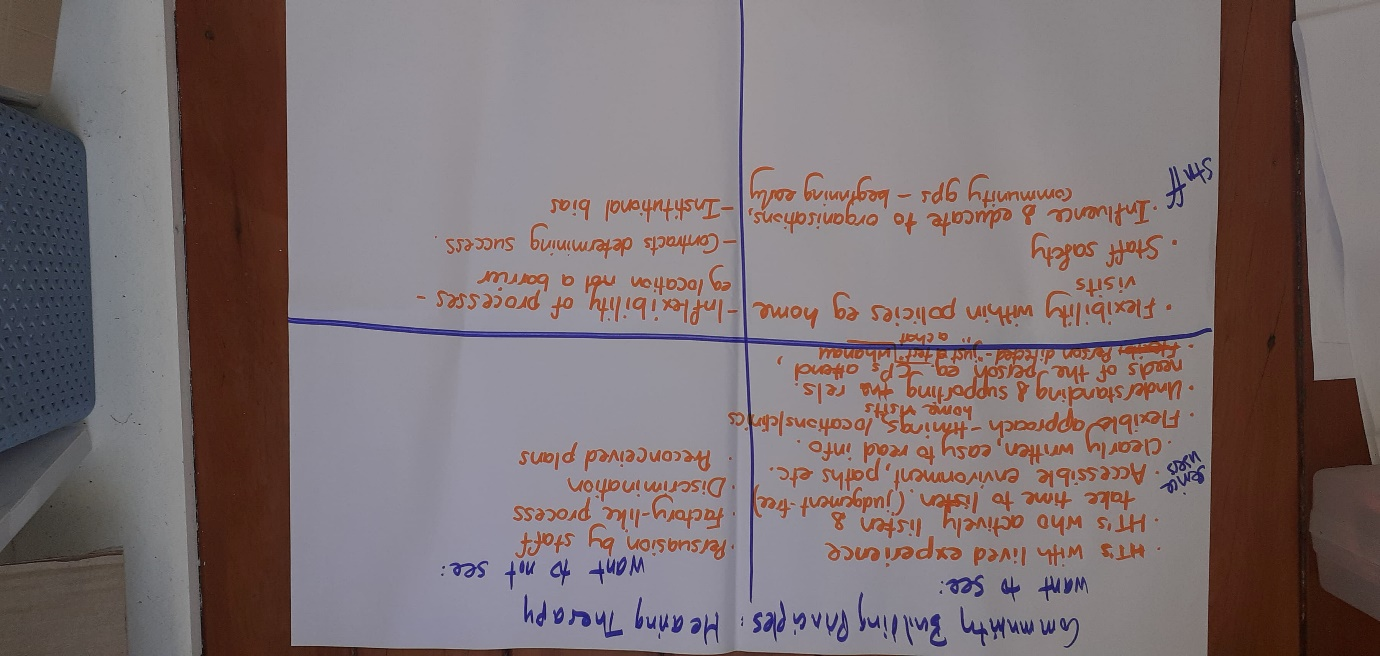 Community Building Principles: Hearing Therapy
want to see:
service
users
· HT's with lived experience
· HT's who actively listen &
take time to listen. (judgement-free)
· Accessible environment, paths etc.
· Clearly written, easy to read info.
· Flexible approach - timings, locations/clinics
home visits
· Understanding & supporting the rels.
needs of the person eg. JCPs attend,
· Person directed - "just a test" whanau
a chat
want to not see:
· Persuasion by staff
· Factory-like process
· Discrimination
· Preconceived plans
Staff
· Flexibility within policies eg home
visits
· Staff safety
· Influence & educate to organisations,
community gps - beginning early
- Inflexibility of processes -
eg location not a barrier
- Contracts determining success.
- Institutional bias